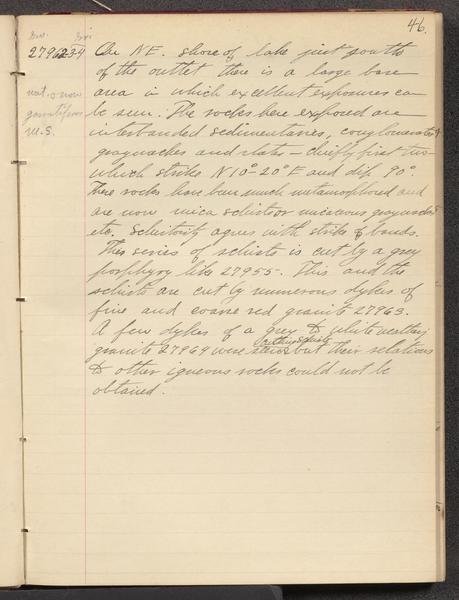 46.
27962-3-4 On NE. shore of lake just south
of the outlet there is a large bare
area in which excellent exposures can
be seen. The rocks here exposed are
interbanded sedimentaries, conglomerates,
graywackes and slates – chiefly first two
which strike N10°-20°E and dip 90°.
These rocks have been much metamorphosed and
are now mica schists or micaceous graywackes
etc. Schistosity agrees with strike of bands.
This series of schists is cut by a grey
porphyry like 27955-. This and the
schists are cut by numerous dykes of
fine and coarse red granite 27963.
A few dykes of a grey to white weathering
granite 27964 were seen but their relations
cutting schists
to other igneous rocks could not be
obtained.
not. now
garnetiferous
M.S.